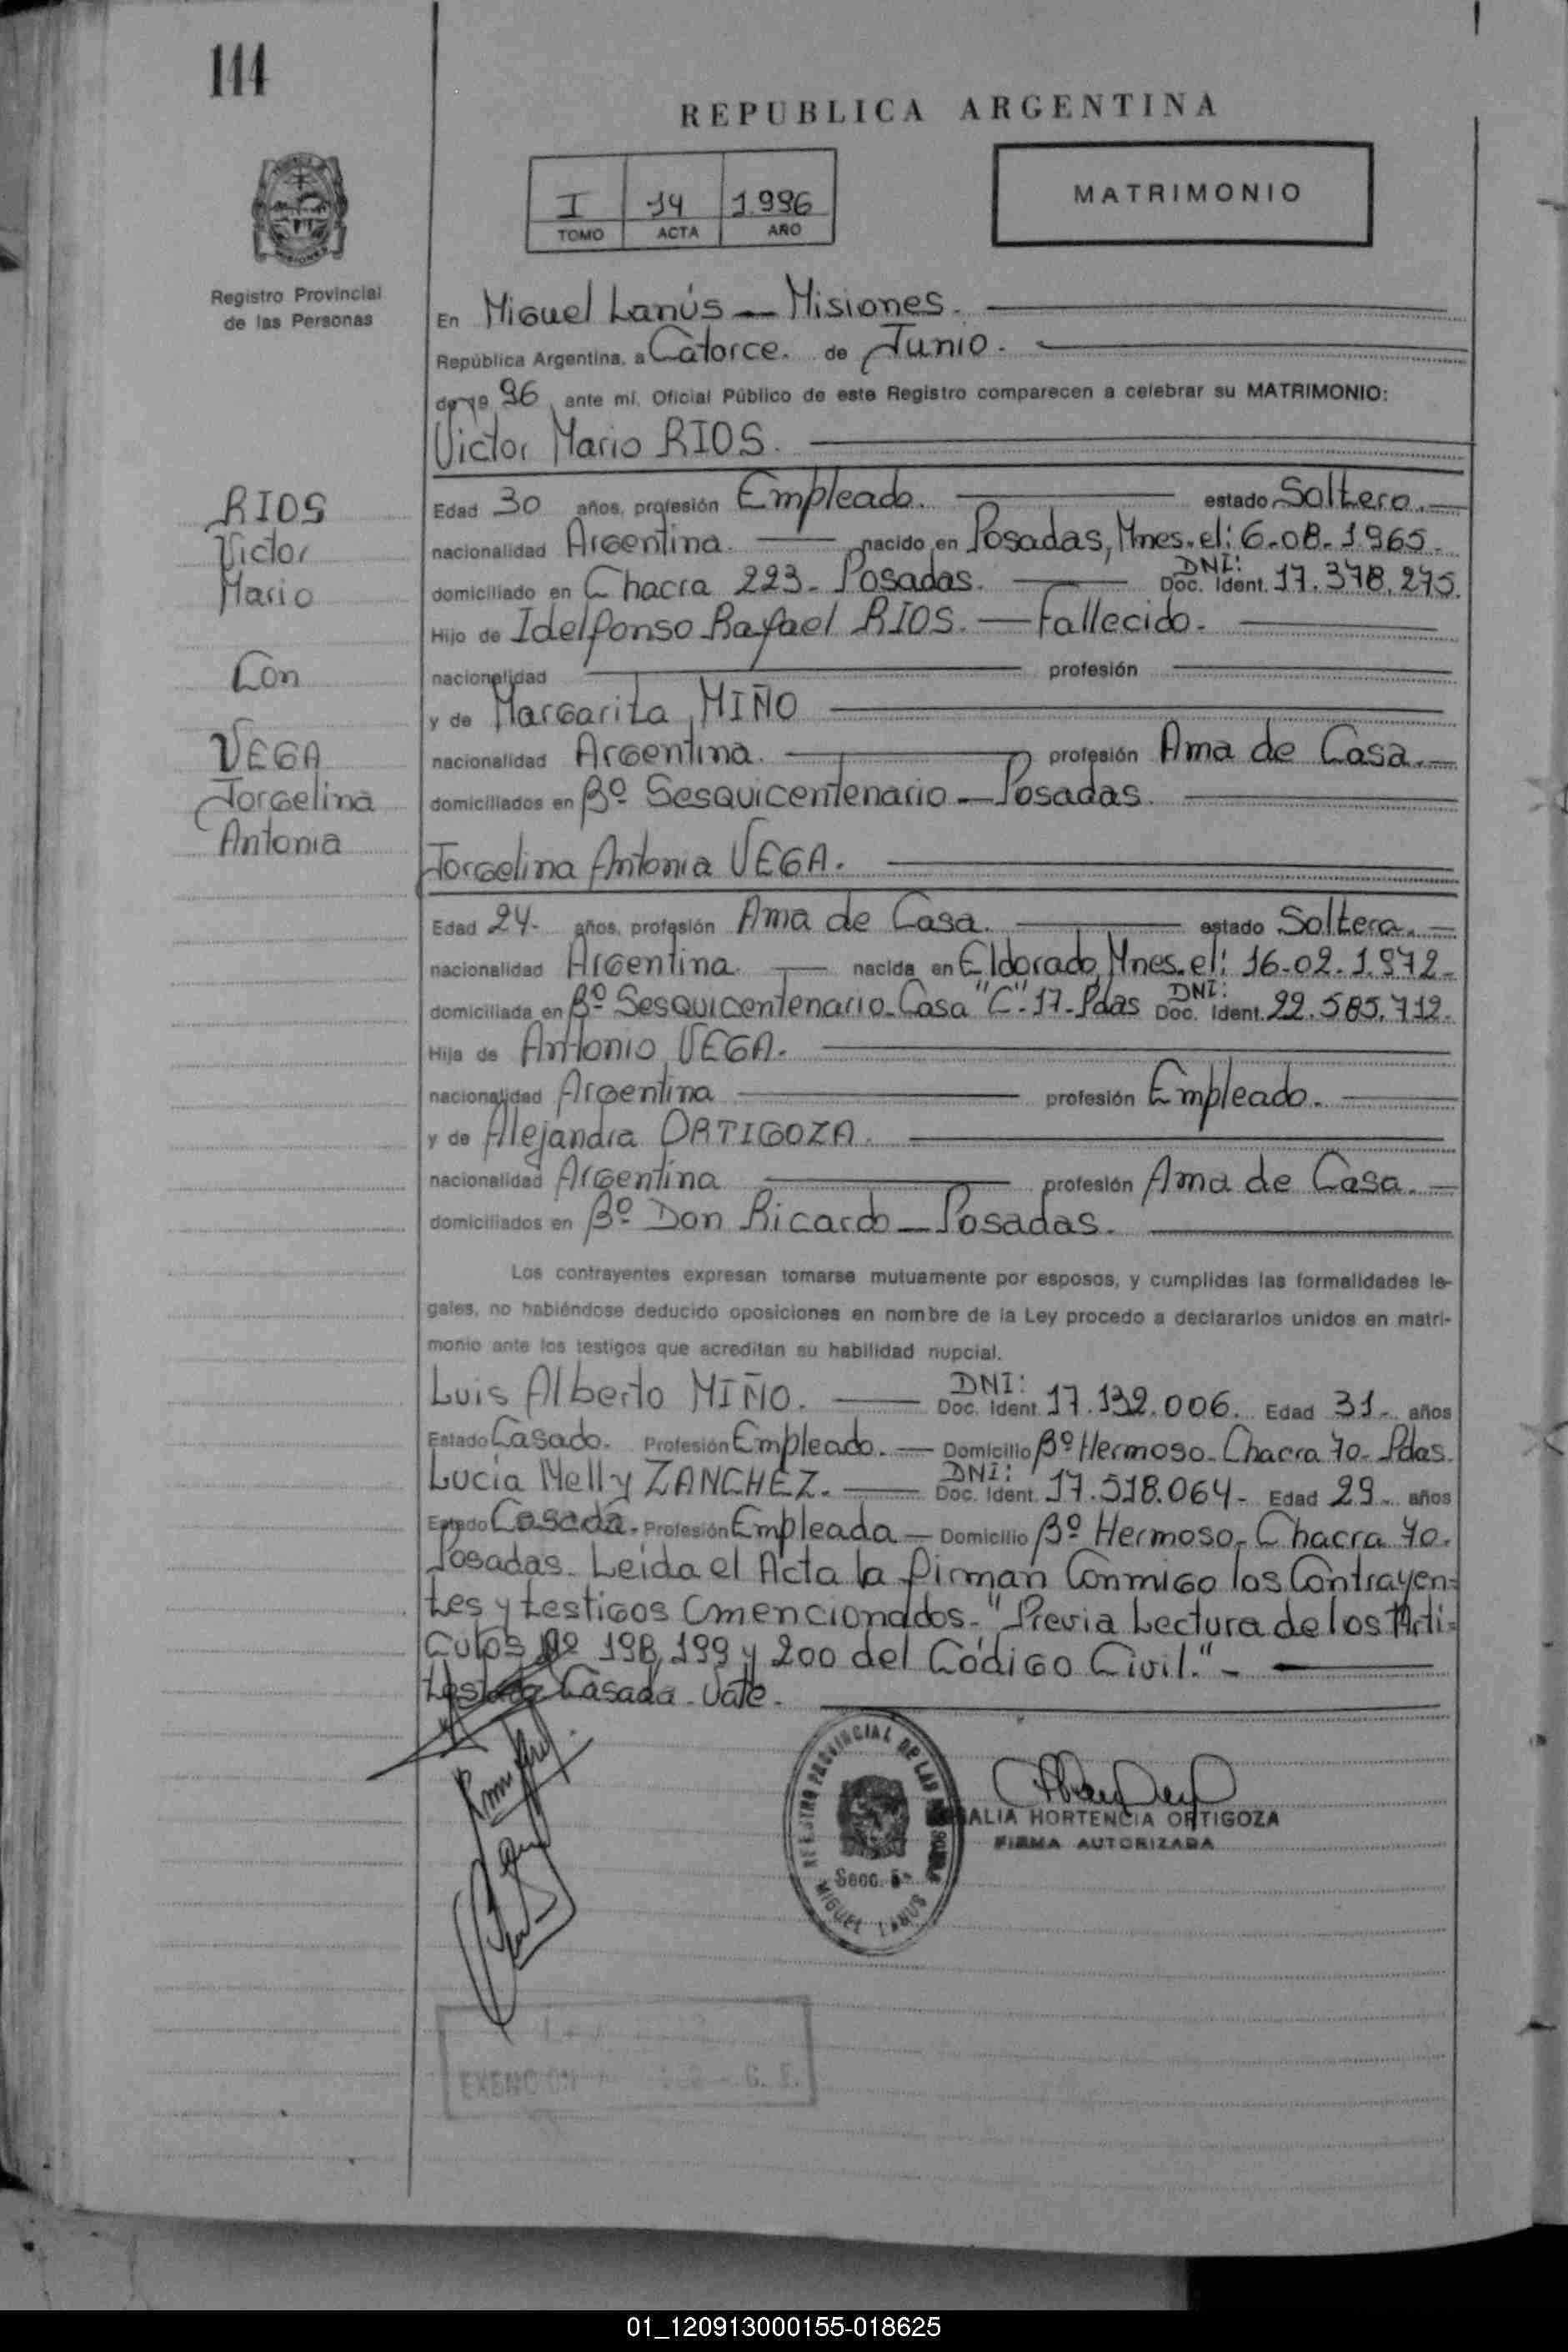 144
REPUBLICA ARGENTINA
I 14 1.996
TOMO ACTA AÑO
MATRIMONIO
Registro Provincial
de las Personas
En Miguel Lanús — Misiones.
República Argentina, a Catorce. de Junio.
de 19 96 ante mí, Oficial Público de este Registro comparecen a celebrar su MATRIMONIO:
Victor Mario RIOS.
RIOS
Victor
Mario
Con
VEGA
Jorgelina
Antonia
Edad 30 años, profesión Empleado. estado Soltero.
nacionalidad Argentina. nacido en Posadas, Mnes. el: 6-08-1965-
domiciliado en Chacra 223- Posadas. DNI: Doc. Ident. 17.378.275.
Hijo de Idelfonso Rafael RIOS. — Fallecido.
nacionalidad profesión
y de Margarita MIÑO
nacionalidad Argentina. profesión Ama de Casa.
domiciliados en Bº Sesquicentenario — Posadas.
Jorgelina Antonia VEGA.
Edad 24- años, profesión Ama de Casa. estado Soltera.
nacionalidad Argentina. nacida en Eldorado, Mnes. el: 16-02-1.972-
domiciliada en Bº Sesquicentenario- Casa "C"- 17- Pdas DNI: Doc. Ident. 22.585.712-
Hija de Antonio VEGA.
nacionalidad Argentina profesión Empleado.
y de Alejandra ORTIGOZA.
nacionalidad Argentina profesión Ama de Casa.
domiciliados en Bº Don Ricardo — Posadas.
Los contrayentes expresan tomarse mutuamente por esposos, y cumplidas las formalidades le-
gales, no habiéndose deducido oposiciones en nombre de la Ley procedo a declararlos unidos en matri-
monio ante los testigos que acreditan su habilidad nupcial.
Luis Alberto MIÑO. DNI: Doc. Ident. 17.132.006. Edad 31- años
Estado Casado. Profesión Empleado. — Domicilio Bº Hermoso- Chacra 70- Pdas.
Lucía Nelly ZANCHEZ. DNI: Doc. Ident. 17.518.064- Edad 29- años
Estado Casada. Profesión Empleada — Domicilio Bº Hermoso- Chacra 70.
Posadas. Leida el Acta la firman Conmigo los Contrayen=
tes y testigos mencionados- "Previa Lectura de los Arti=
Culos Nº 198, 199 y 200 del Código Civil."-
Casada- Vale.
REGISTRO PROVINCIAL DE LAS PERSONAS
Secc. 5ª
MIGUEL LANUS
ALIA HORTENCIA ORTIGOZA
FIRMA AUTORIZADA
01_120913000155-018625